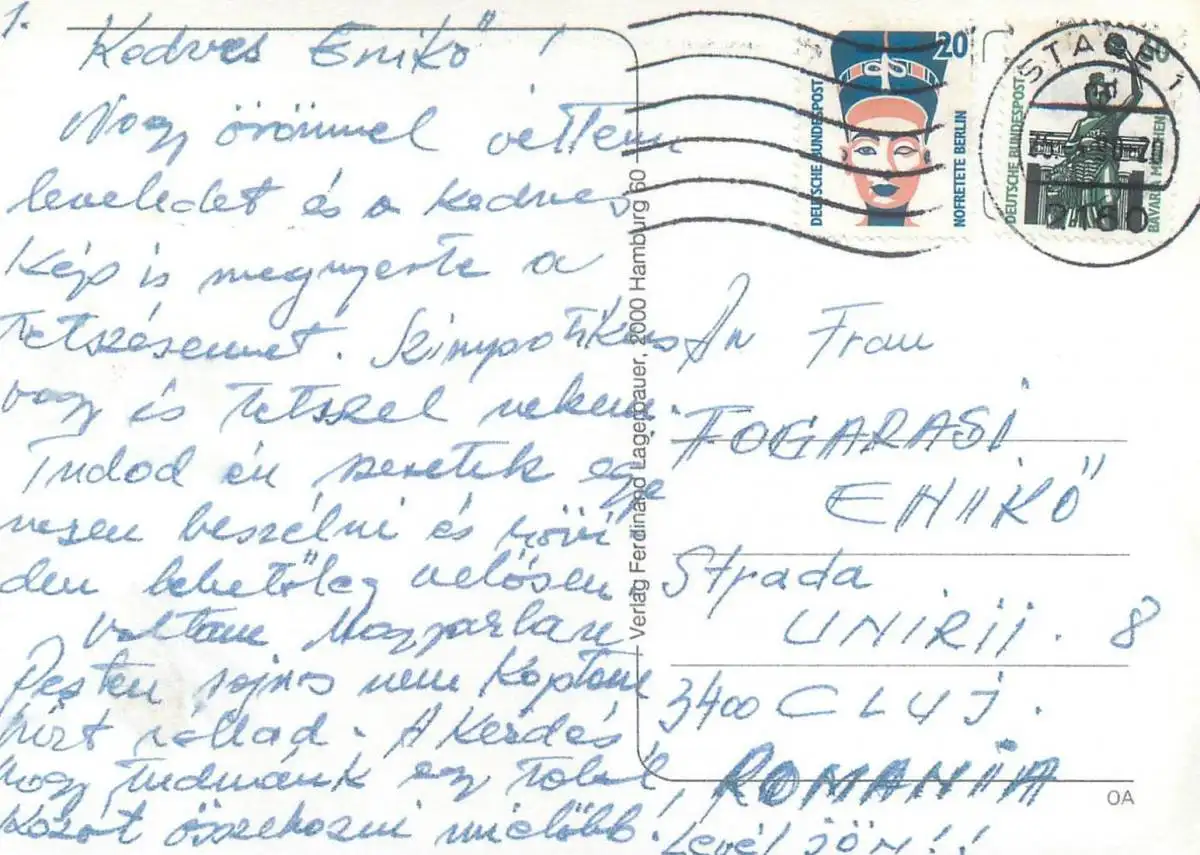 1.
Kedves Enikő!
Nagy örömmel vettem
leveledet és a kedves
kép is megnyerte a
tetszésemet. Szimpatikus
vagy és tetszel nekem.
Tudod én szeretek egye
nesen beszélni és rövi
den lehetőleg velősen
voltam Magyarban
Pesten sajnos nem kaptam
hírt rollad. A kérdés
hogy tudnánk ez
közöt összehozni mielőbb!
20
DEUTSCHE BUNDESPOST
NOFRETETE BERLIN
DEUTSCHE BUNDESPOST
BAVARIA MÜNCHEN
STADE 1
2160
Verlag Ferdinand Lagerbauer, 2000 Hamburg 60
An Frau
FOGARASI
ENIKŐ
Strada
UNIRII. 8
3400 CLUJ.
ROMANIA
Levél jön!!
OA